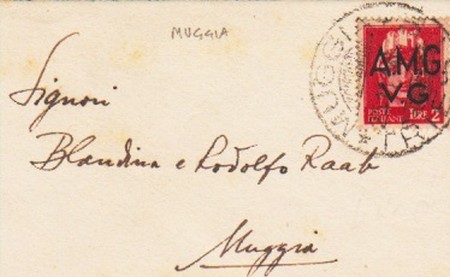 MUGGIA
MUGGIA
* TR
A.M.G.
V.G.
POSTE ITALIANE LIRE 2
Signori
Blandina e Rodolfo Raab
Muggia